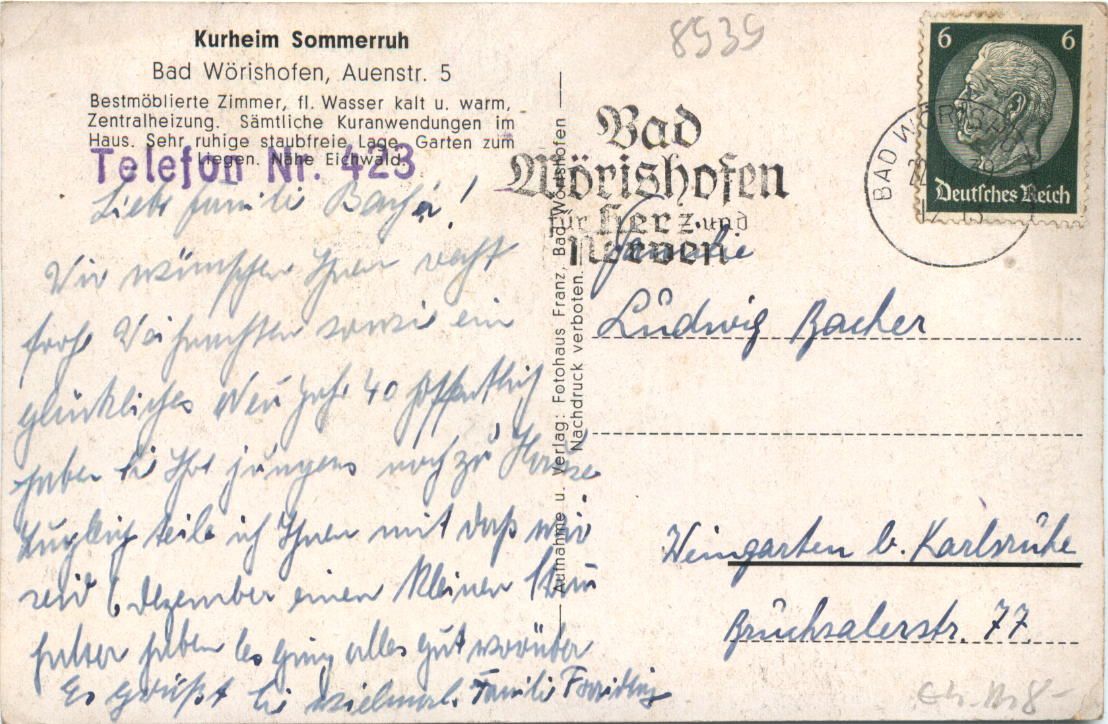 Kurheim Sommerruh
Bad Wörishofen, Auenstr. 5
Bestmöblierte Zimmer, fl. Wasser kalt u. warm,
Zentralheizung. Sämtliche Kuranwendungen im
Haus. Sehr ruhige staubfreie Lage. Garten zum
Liegen. Nähe Eichwald.
Telefon Nr. 423
Liebe Familie Bacher!
Wir wünschen Ihnen recht
frohe Weihnachten sowie ein
glückliches Neu Jahr 40 hoffentlich
haben Sie Ihre jungens noch zu Hause
Zugleich teile ich Ihnen mit daß wir
seid 6 dezember einen kleinen Stam
halter haben es ging alles gut vorüber
Es Grüßt Sie vielmal. Familie
Aufnahme u. Verlag: Fotohaus Franz, Bad Wörishofen
Nachdruck verboten.
8939
Bad
Wörishofen
für Herz und
Nerven
BAD WÖRISHOFEN
6 6
Deutsches Reich
Familie
Ludwig Bacher
Weingarten b. Karlsruhe
Bruchsalerstr. 77.